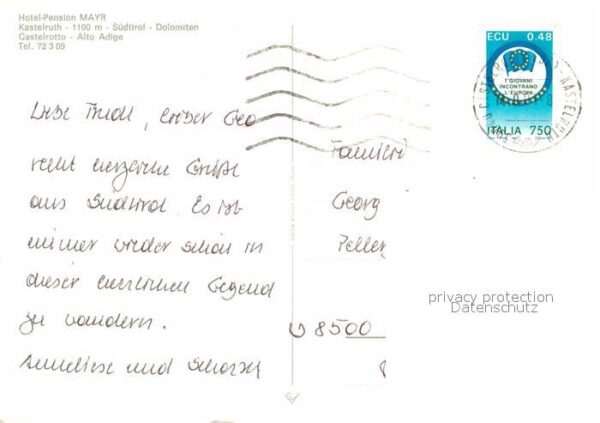 Hotel-Pension MAYR
Kastelruth - 1100 m - Südtirol - Dolomiten
Castelrotto - Alto Adige
Tel. 72 3 09
Liebe Trudl, lieber Geo
recht herzliche Grüße
aus Südtirol. Es ist
immer wieder schön in
dieser herrlichen Gegend
zu wandern.
Anneliese und Schorsch
ECU 0.48
I GIOVANI
INCONTRANO
L'EUROPA
ITALIA 750
KASTELRUTH
Familie
Georg
8500
privacy protection
Datenschutz